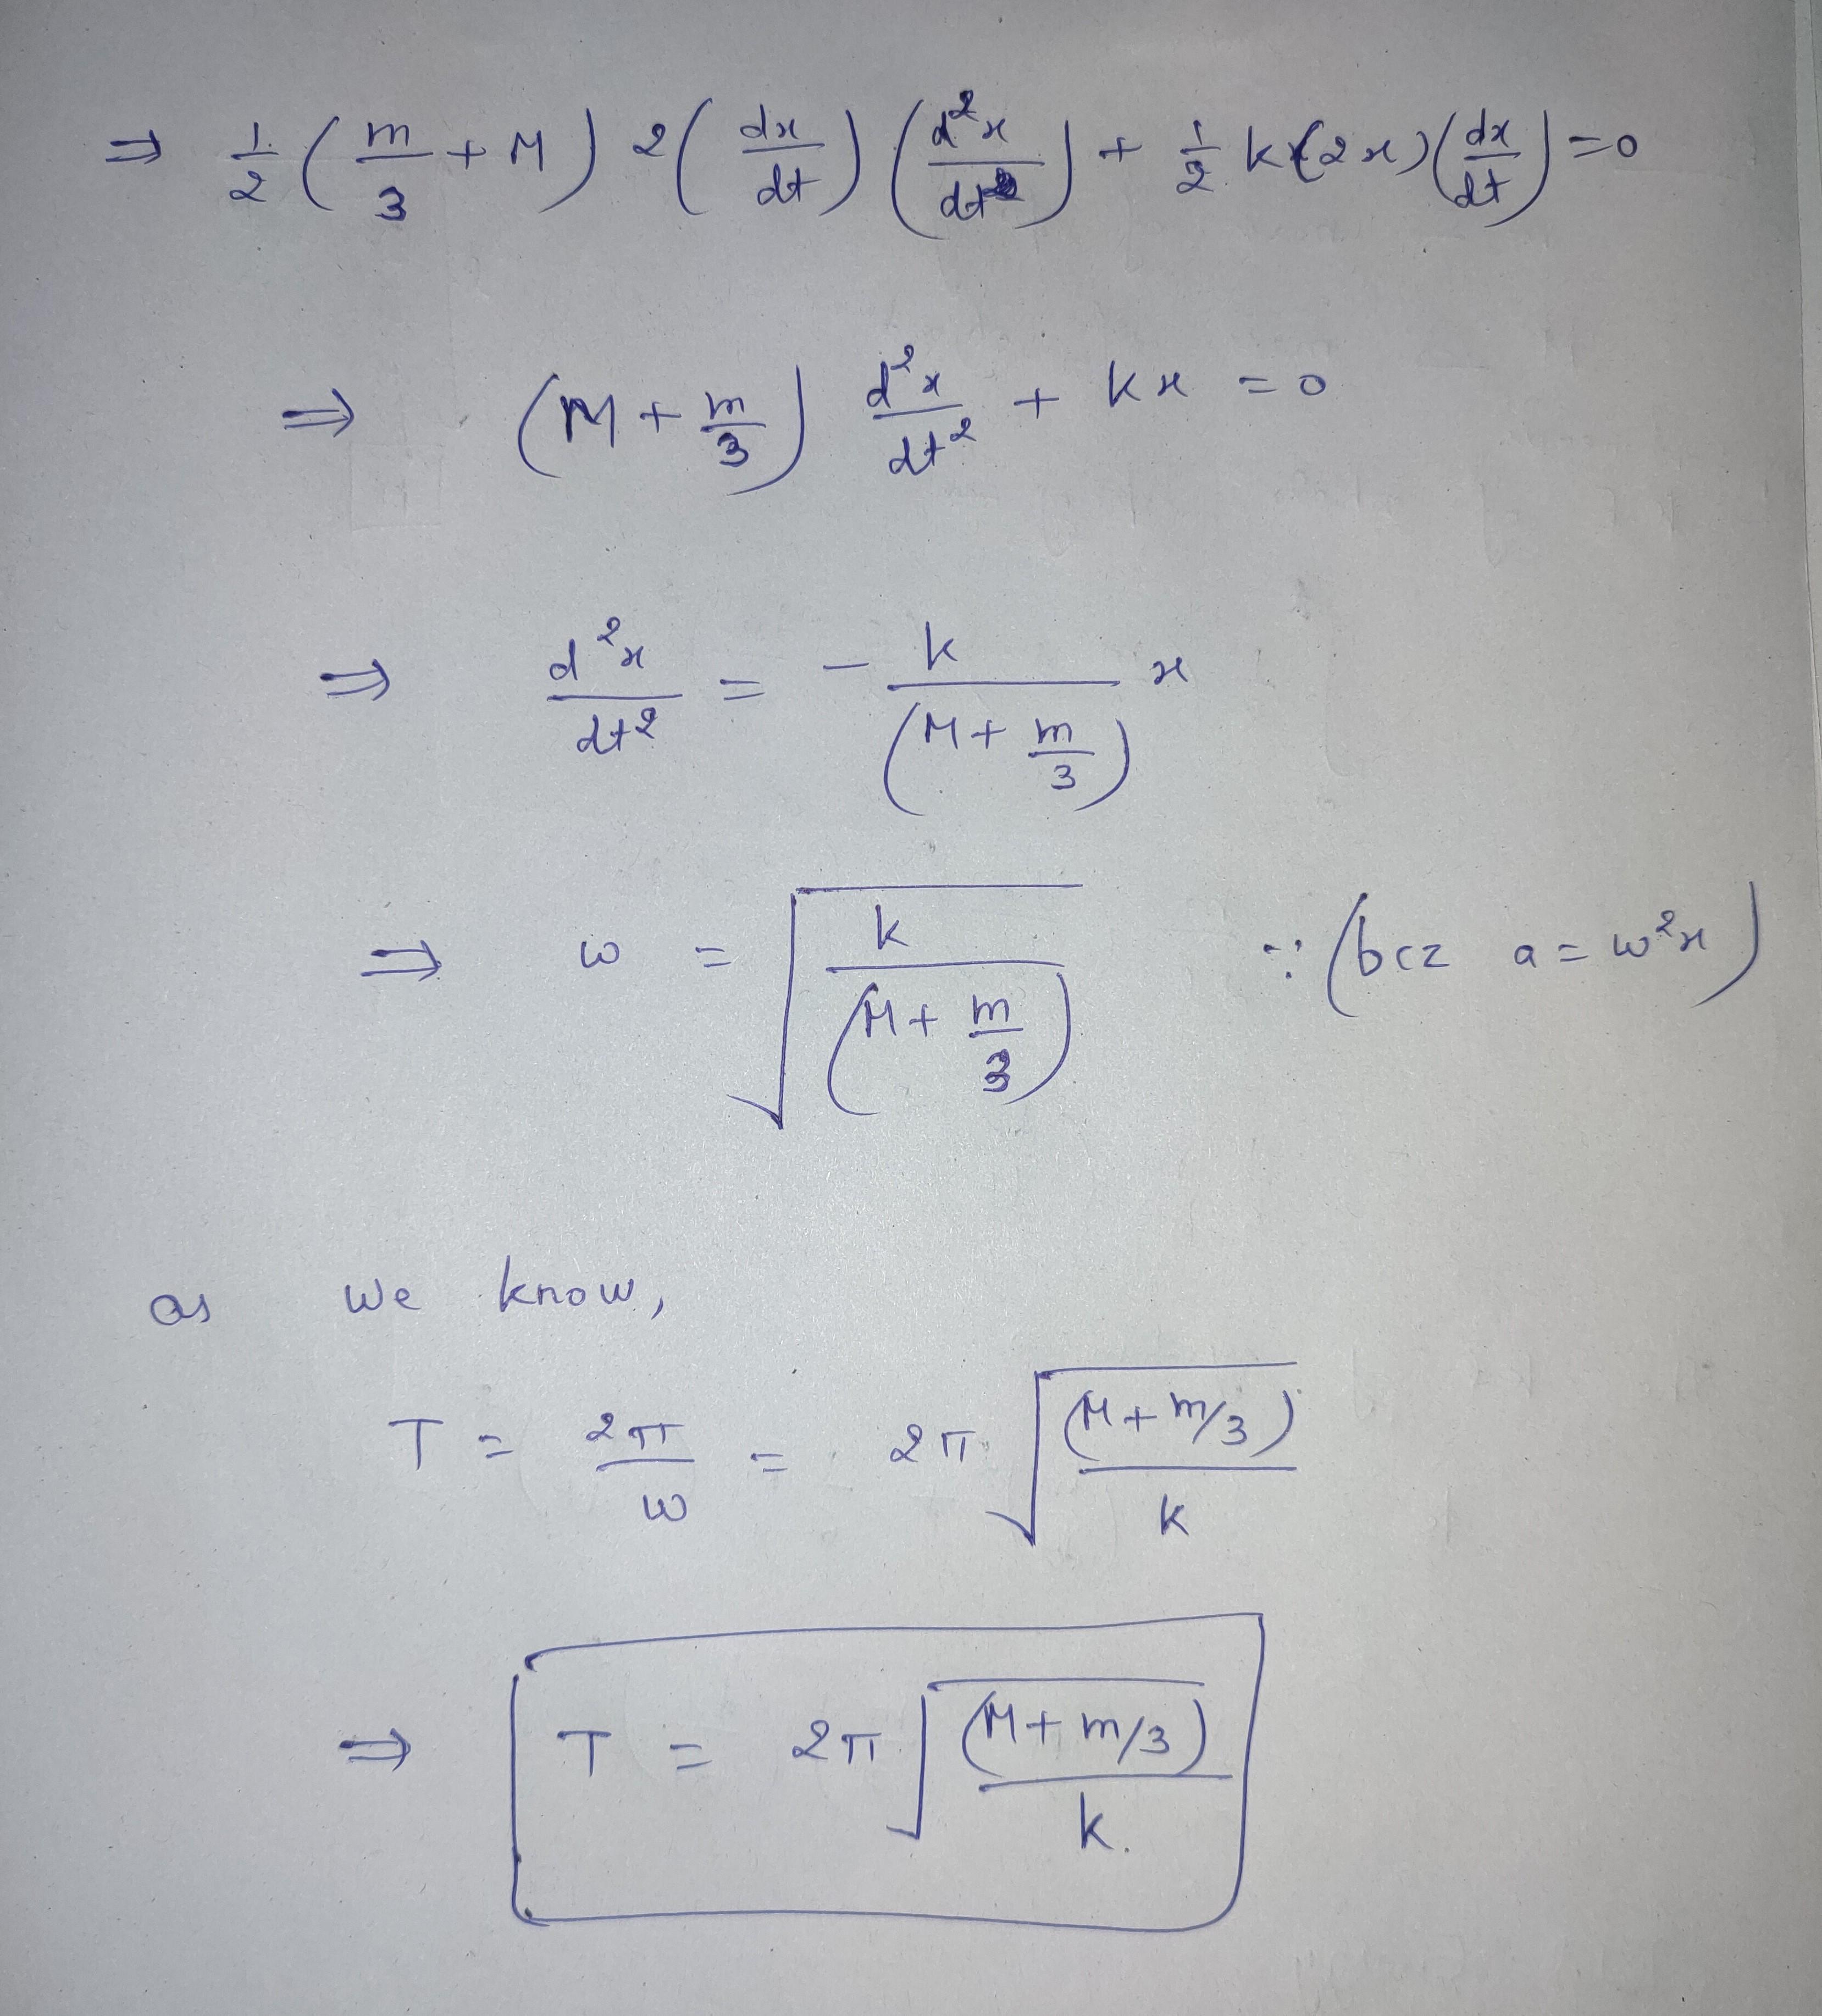 ⇒ 1/2 (m/3 + M) 2 (dx/dt) (d²x/dt²) + 1/2 k (2x) (dx/dt) = 0
⇒ (M + m/3) d²x/dt² + kx = 0
⇒ d²x/dt² = - k/(M + m/3) x
⇒ ω = √(k/(M + m/3)) ∵ (bcz a = ω²x)
as we know,
T = 2π/ω = 2π √((M + m/3)/k)
⇒ T = 2π √((M + m/3)/k.)